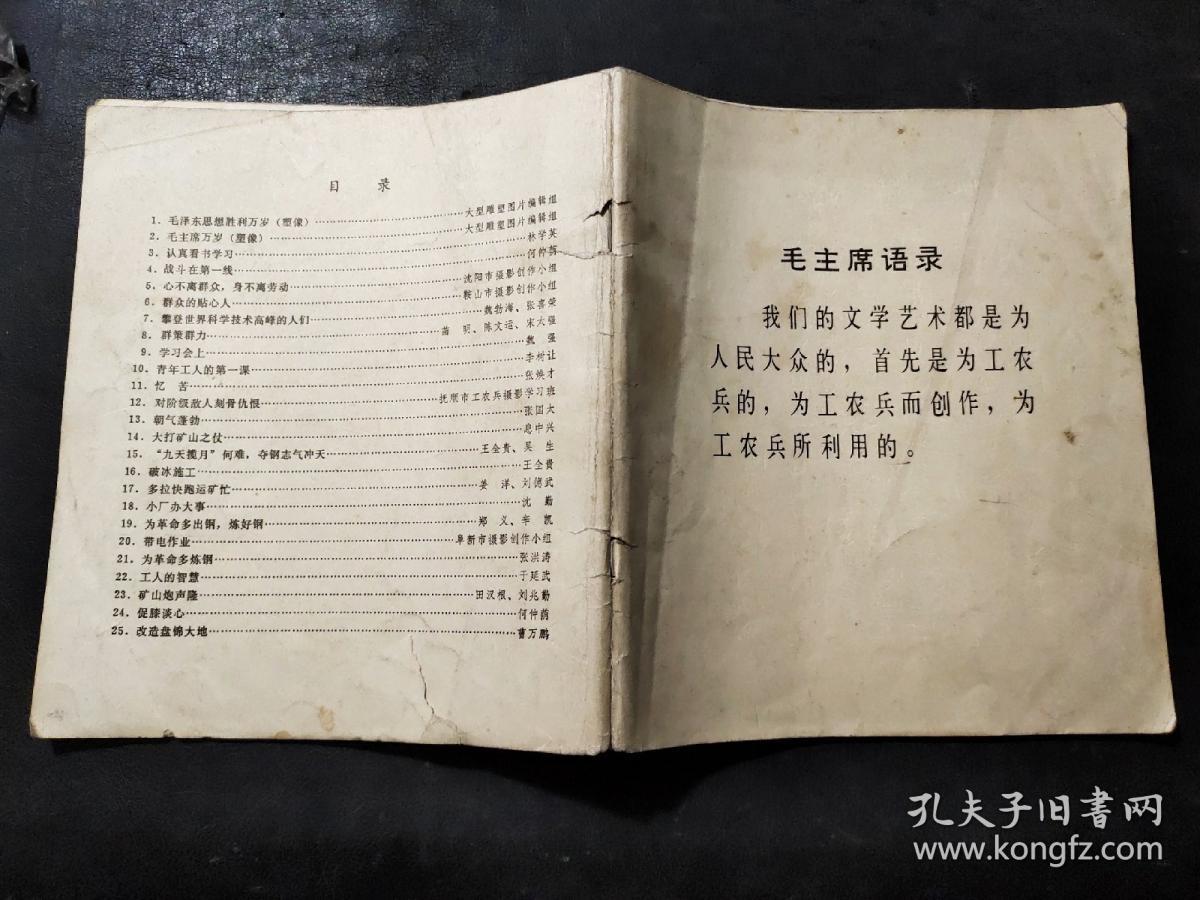 目 录
1. 毛泽东思想胜利万岁（塑像）……大型雕塑图片编辑组
2. 毛主席万岁（塑像）……大型雕塑图片编辑组
3. 认真看书学习……林学英
4. 战斗在第一线……何仲蓢
5. 心不离群众，身不离劳动……沈阳市摄影创作小组
6. 群众的贴心人……鞍山市摄影创作小组
7. 攀登世界科学技术高峰的人们……魏勃海、张喜荣
8. 群策群力……苗 明、陈文运、宋大强
9. 学习会上……魏 强
10. 青年工人的第一课……李树让
11. 忆 苦……张焕才
12. 对阶级敌人刻骨仇恨……抚顺市工农兵摄影学习班
13. 朝气蓬勃……张国大
14. 大打矿山之仗……息中兴
15. “九天揽月”何难，夺钢志气冲天……王全贵、吴 生
16. 破冰施工……王全贵
17. 多拉快跑运矿忙……姜 洋、刘德武
18. 小厂办大事……沈 勤
19. 为革命多出钢，炼好钢……郑 义、辛 凯
20. 带电作业……阜新市摄影创作小组
21. 为革命多炼钢……张洪涛
22. 工人的智慧……于延武
23. 矿山炮声隆……田汉根、刘兆勤
24. 促膝谈心……何仲蓢
25. 改造盘锦大地……曹万鹏
毛主席语录
我们的文学艺术都是为
人民大众的，首先是为工农
兵的，为工农兵而创作，为
工农兵所利用的。
孔夫子旧書网
www.kongfz.com